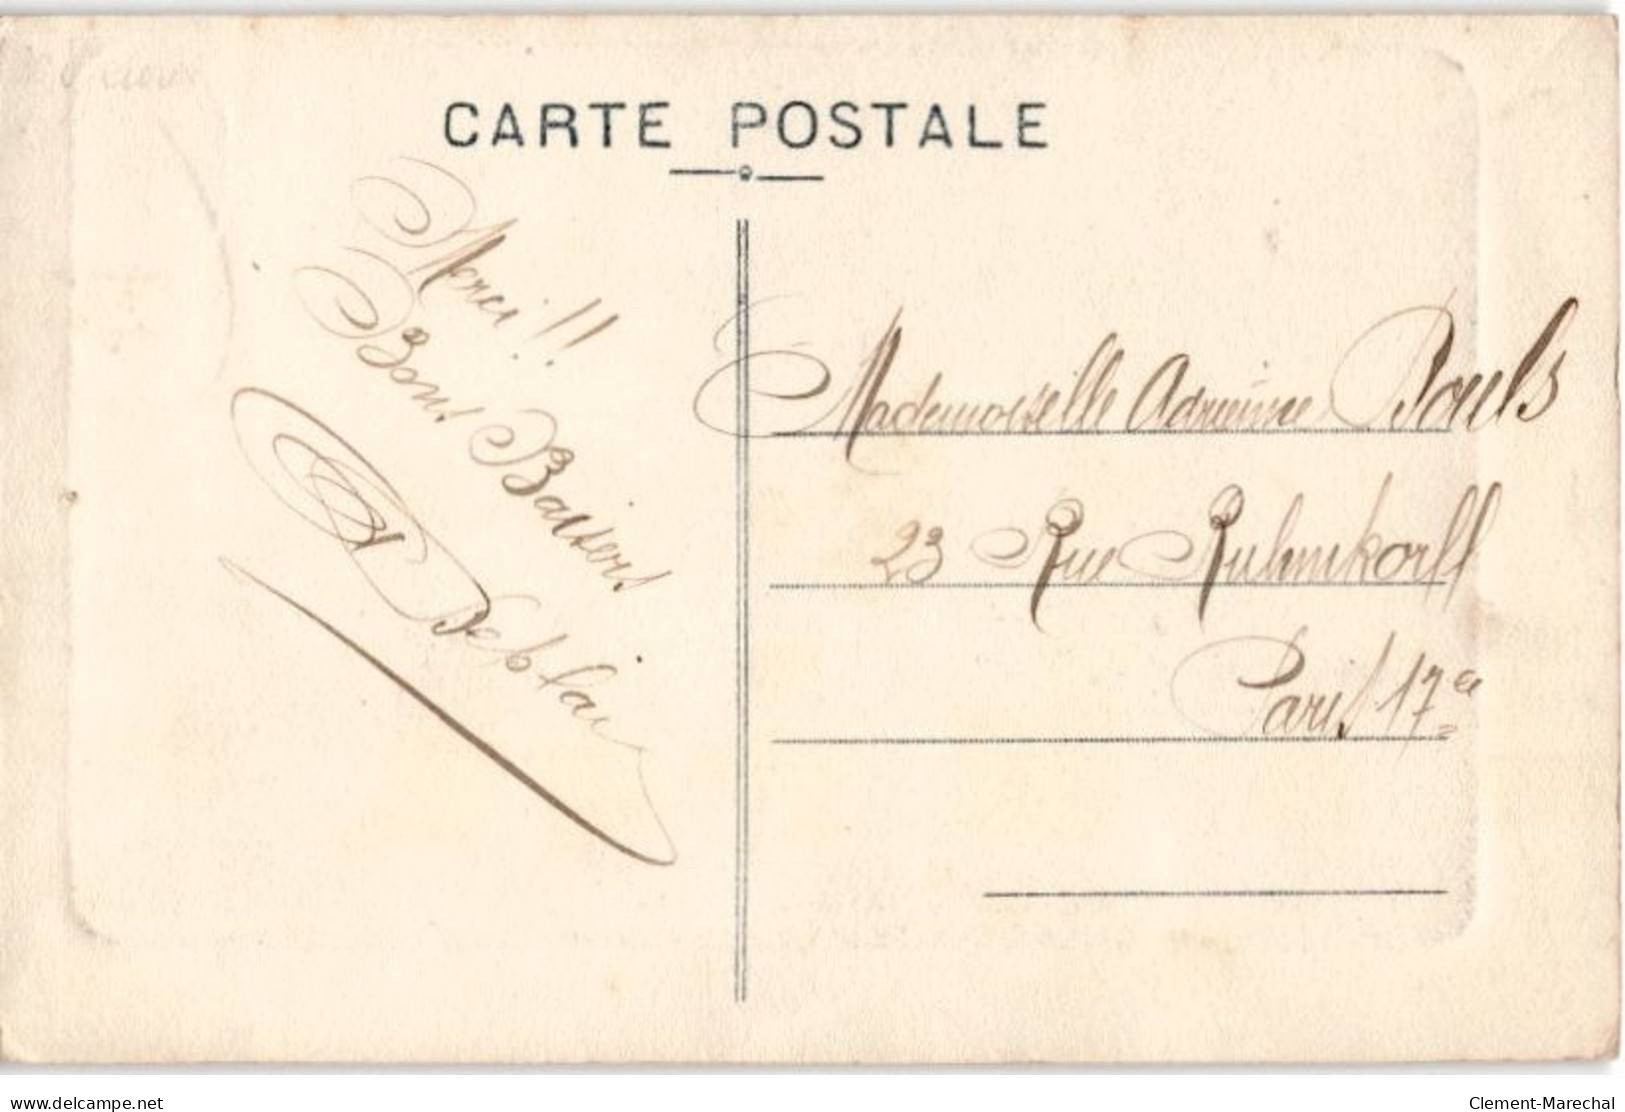 CARTE POSTALE
Merci!!
Bons Baisers
Mademoiselle Adrienne Pouls
23 Rue Ruhmkorff
Paris 17e
delcampe.net
Clement-Marechal